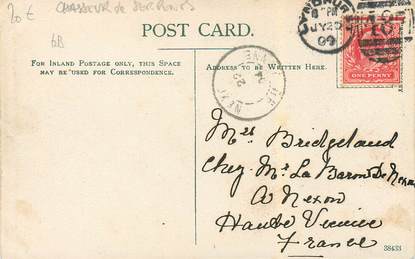 20 €
CHASSEUR de SERPENTS
6B
POST CARD.
FOR INLAND POSTAGE ONLY, THIS SPACE
MAY BE USED FOR CORRESPONDENCE.
ADDRESS TO BE WRITTEN HERE.
JY 20
09
ONE PENNY
NEXON
22
Mrs Bridgeland
Chez Mr La Baron De Nexon
A Nexon
Haute Vienne
France
38433